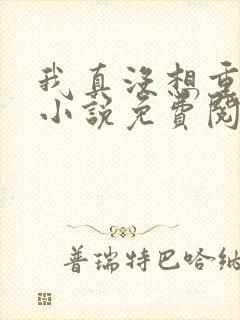 我真没想重
小说免费阅
普瑞特巴哈纳